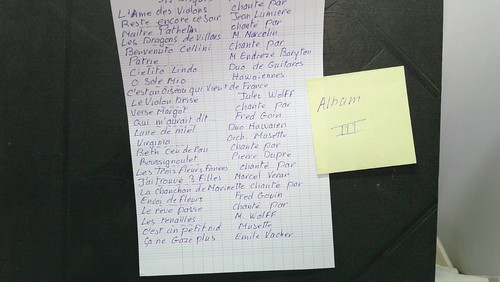 L'Ame des Violons chanté par
Reste encore ce soir Jean Lumière
Maitre Pathelin chanté par
Les Dragons de Villars M. Marcelin
Benvenuto Cellini chante par
Patrie M Endreze Baryton
Cielito Lindo Duo de Guitares
O Sole Mio Hawaiennes
C'est un Oiseau qui Vient de France
Le Violon brisé Jules Wolff
Verse Margot chante par
Qui m'aurait dit Fred Gouin
Lune de miel Duo Hawaien
Virginia Orch. Musette
Beth Ceu de Pau chanté par
Roussignoulet Pierre Dupré
Les Trois Fleurs Fanées chanté par
J'ai trouvé 3 Filles Marcel Veran
La Chanchon de Marinette Chante par
Envoi de Fleurs Fred Gouin
Le reve passe chanté par
Les renailles M. Wolff
C'est un petit nid Musette
Ça ne Gaze plus Emile Vacher
Album
III